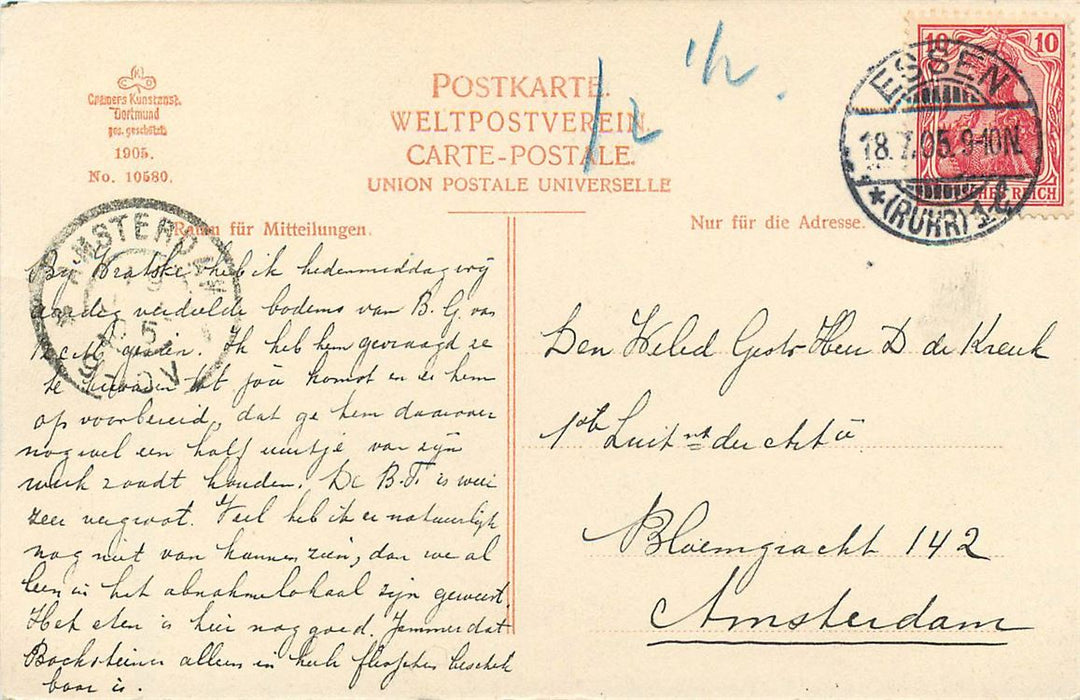 Cramers Kunstanst.
Dortmund
ges. geschützt
1905.
No. 10580.
POSTKARTE.
WELTPOSTVEREIN
CARTE-POSTALE.
UNION POSTALE UNIVERSELLE
1/2
1/2
10 10
ESSEN
18.7.05. 9-10N.
*(RUHR)1.C
AMSTERDAM
Raum für Mitteilungen.
Nur für die Adresse.
By heb ik hedenmiddag
aardig verdeelde bodems van B. G. van
gezien. Ik heb hem gevraagd ze
te bewaren tot jou komst en er hem
op voorbereid, dat ge hem daarover
nog wel een half uurtje van zyn
werk zoudt houden. De B.F. is weer
zeer vergroot. Veel heb ik er natuurlijk
nog niet van kunnen zien, daar we al
leen in het abnahmelokaal zijn geweest.
Het eten is hier nog goed. Jammer dat
Bocksteiner alleen in heele flesschen beschik
baar is.
Den Weled Gestr Heer D de Kreuk
1ste Luitnt der Art
Bloemgracht 142
Amsterdam